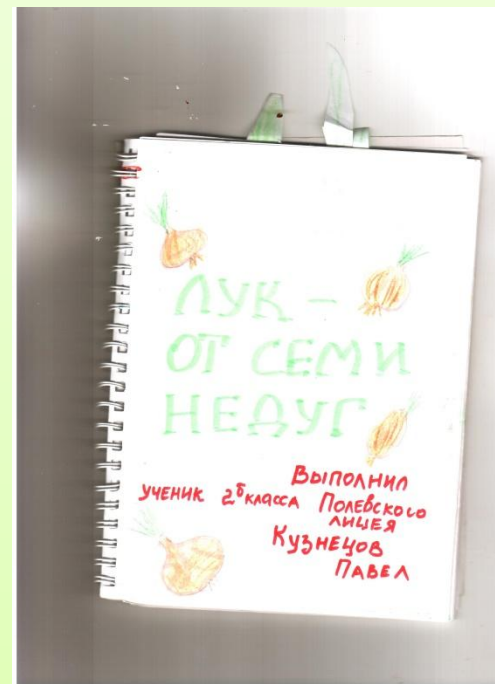 ЛУК –
ОТ СЕМИ
НЕДУГ
ВЫПОЛНИЛ
УЧЕНИК 2Б КЛАССА ПОЛЕВСКОГО
ЛИЦЕЯ
КУЗНЕЦОВ
ПАВЕЛ